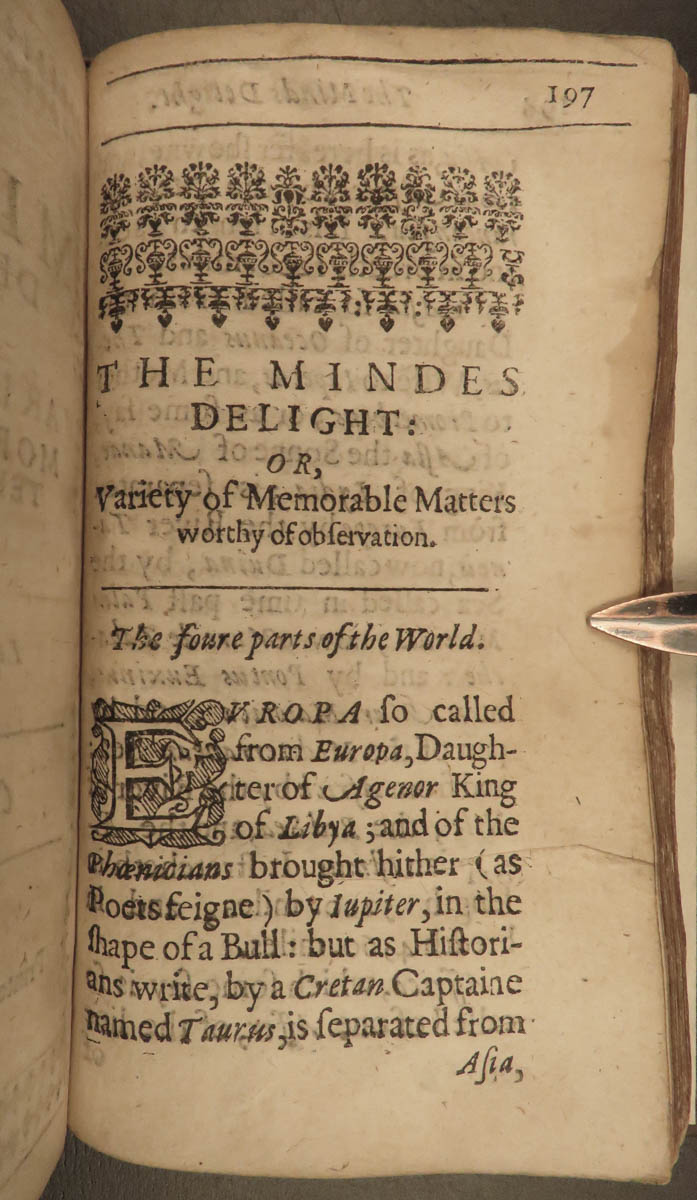 197
THE MINDES
DELIGHT:
OR,
Variety of Memorable Matters
worthy of obſervation.
The foure parts of the World.
EVROPA ſo called
from Europa, Daugh-
ter of Agenor King
of Libya; and of the
Phœnicians brought hither (as
Poets feigne) by Iupiter, in the
ſhape of a Bull: but as Hiſtori-
ans write, by a Cretan Captaine
named Taurus, is ſeparated from
Aſia,